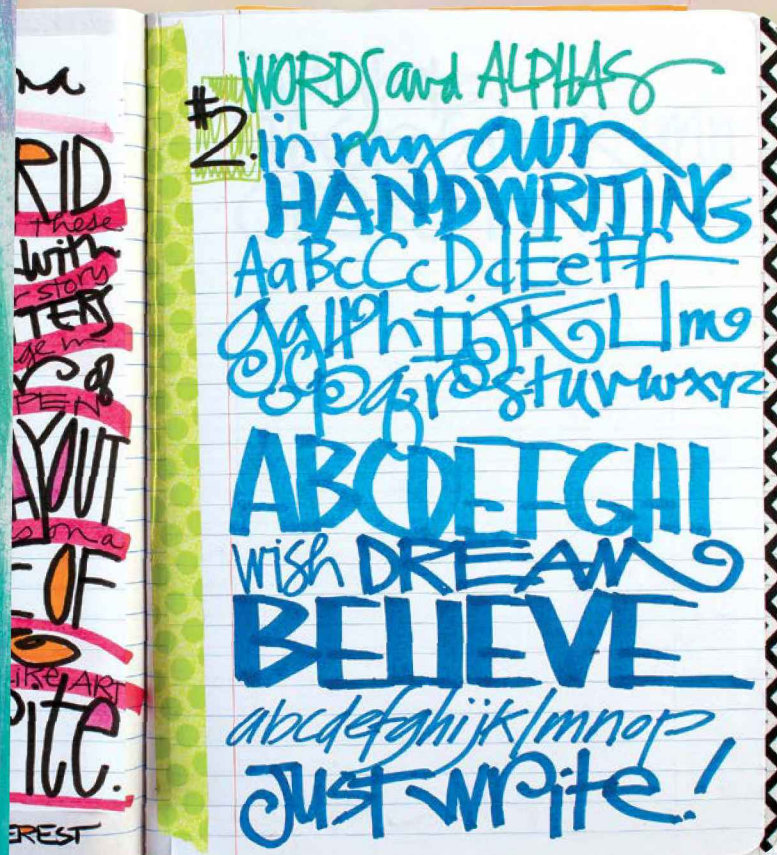 RID
these
with
r story
TERS
ge me
of
PEN
AYOUT
s on a
E OF
LIKE ART
ite.
EREST
WORDS and ALPHAS
#2. in my own
HANDWRITING
AaBcCcDdEeFf
GgHhIiJKLlm
opqrstuvwxyz
ABCDEFGHI
wish DREAM
BELIEVE
abcdefghijklmnop
Just write!